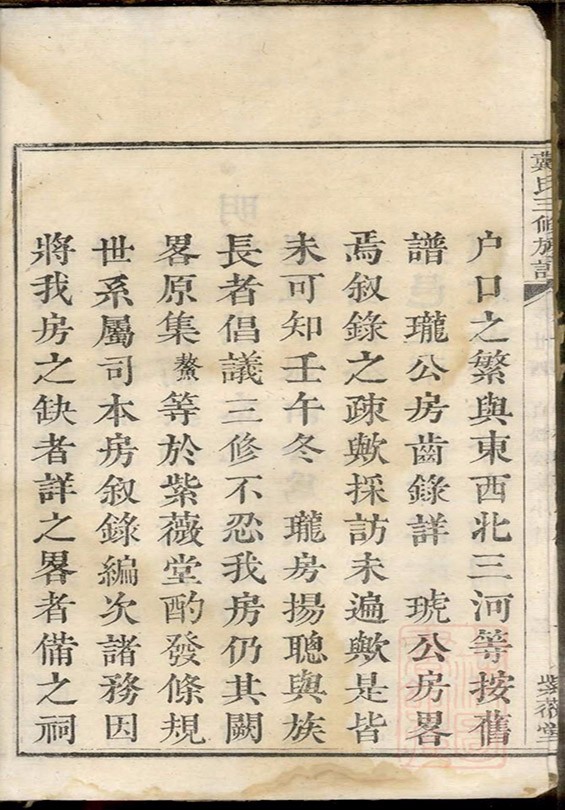 戴氏三修族譜
紫薇堂
户口之繁與東西北三河等按舊
譜　瓏公房齒錄詳　琥公房畧
焉叙錄之疎歟採訪未遍歟是皆
未可知壬午冬　瓏房揚聰與族
長者倡議三修不忍我房仍其闕
畧原集鰲等於紫薇堂酌發條規
世系屬司本房叙錄編次諸務因
將我房之缺者詳之畧者備之祠